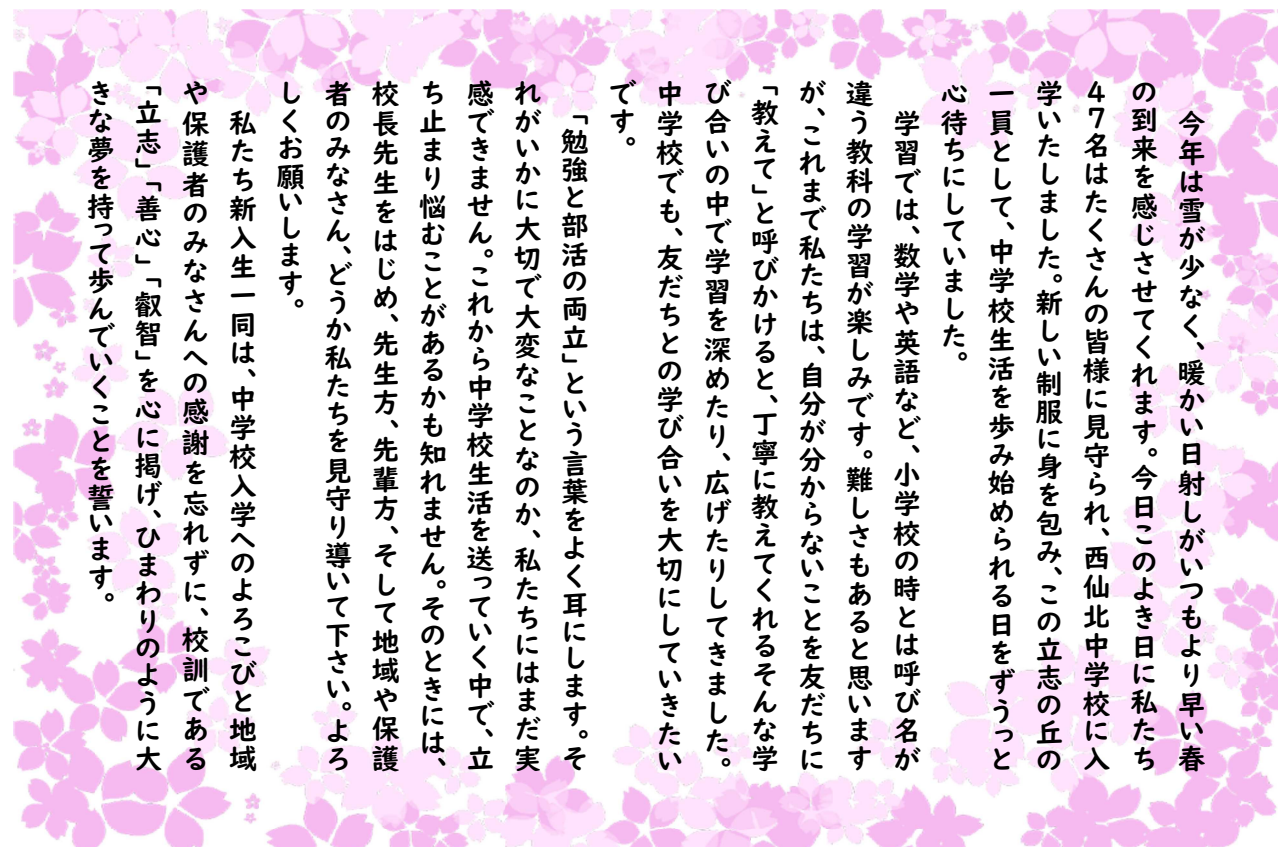 今年は雪が少なく、暖かい日射しがいつもより早い春
の到来を感じさせてくれます。今日このよき日に私たち
４７名はたくさんの皆様に見守られ、西仙北中学校に入
学いたしました。新しい制服に身を包み、この立志の丘の
一員として、中学校生活を歩み始められる日をずうっと
心待ちにしていました。
学習では、数学や英語など、小学校の時とは呼び名が
違う教科の学習が楽しみです。難しさもあると思います
が、これまで私たちは、自分が分からないことを友だちに
「教えて」と呼びかけると、丁寧に教えてくれるそんな学
び合いの中で学習を深めたり、広げたりしてきました。
中学校でも、友だちとの学び合いを大切にしていきたい
です。
「勉強と部活の両立」という言葉をよく耳にします。そ
れがいかに大切で大変なことなのか、私たちにはまだ実
感できません。これから中学校生活を送っていく中で、立
ち止まり悩むことがあるかも知れません。そのときには、
校長先生をはじめ、先生方、先輩方、そして地域や保護
者のみなさん、どうか私たちを見守り導いて下さい。よろ
しくお願いします。
私たち新入生一同は、中学校入学へのよろこびと地域
や保護者のみなさんへの感謝を忘れずに、校訓である
「立志」「善心」「叡智」を心に掲げ、ひまわりのように大
きな夢を持って歩んでいくことを誓います。